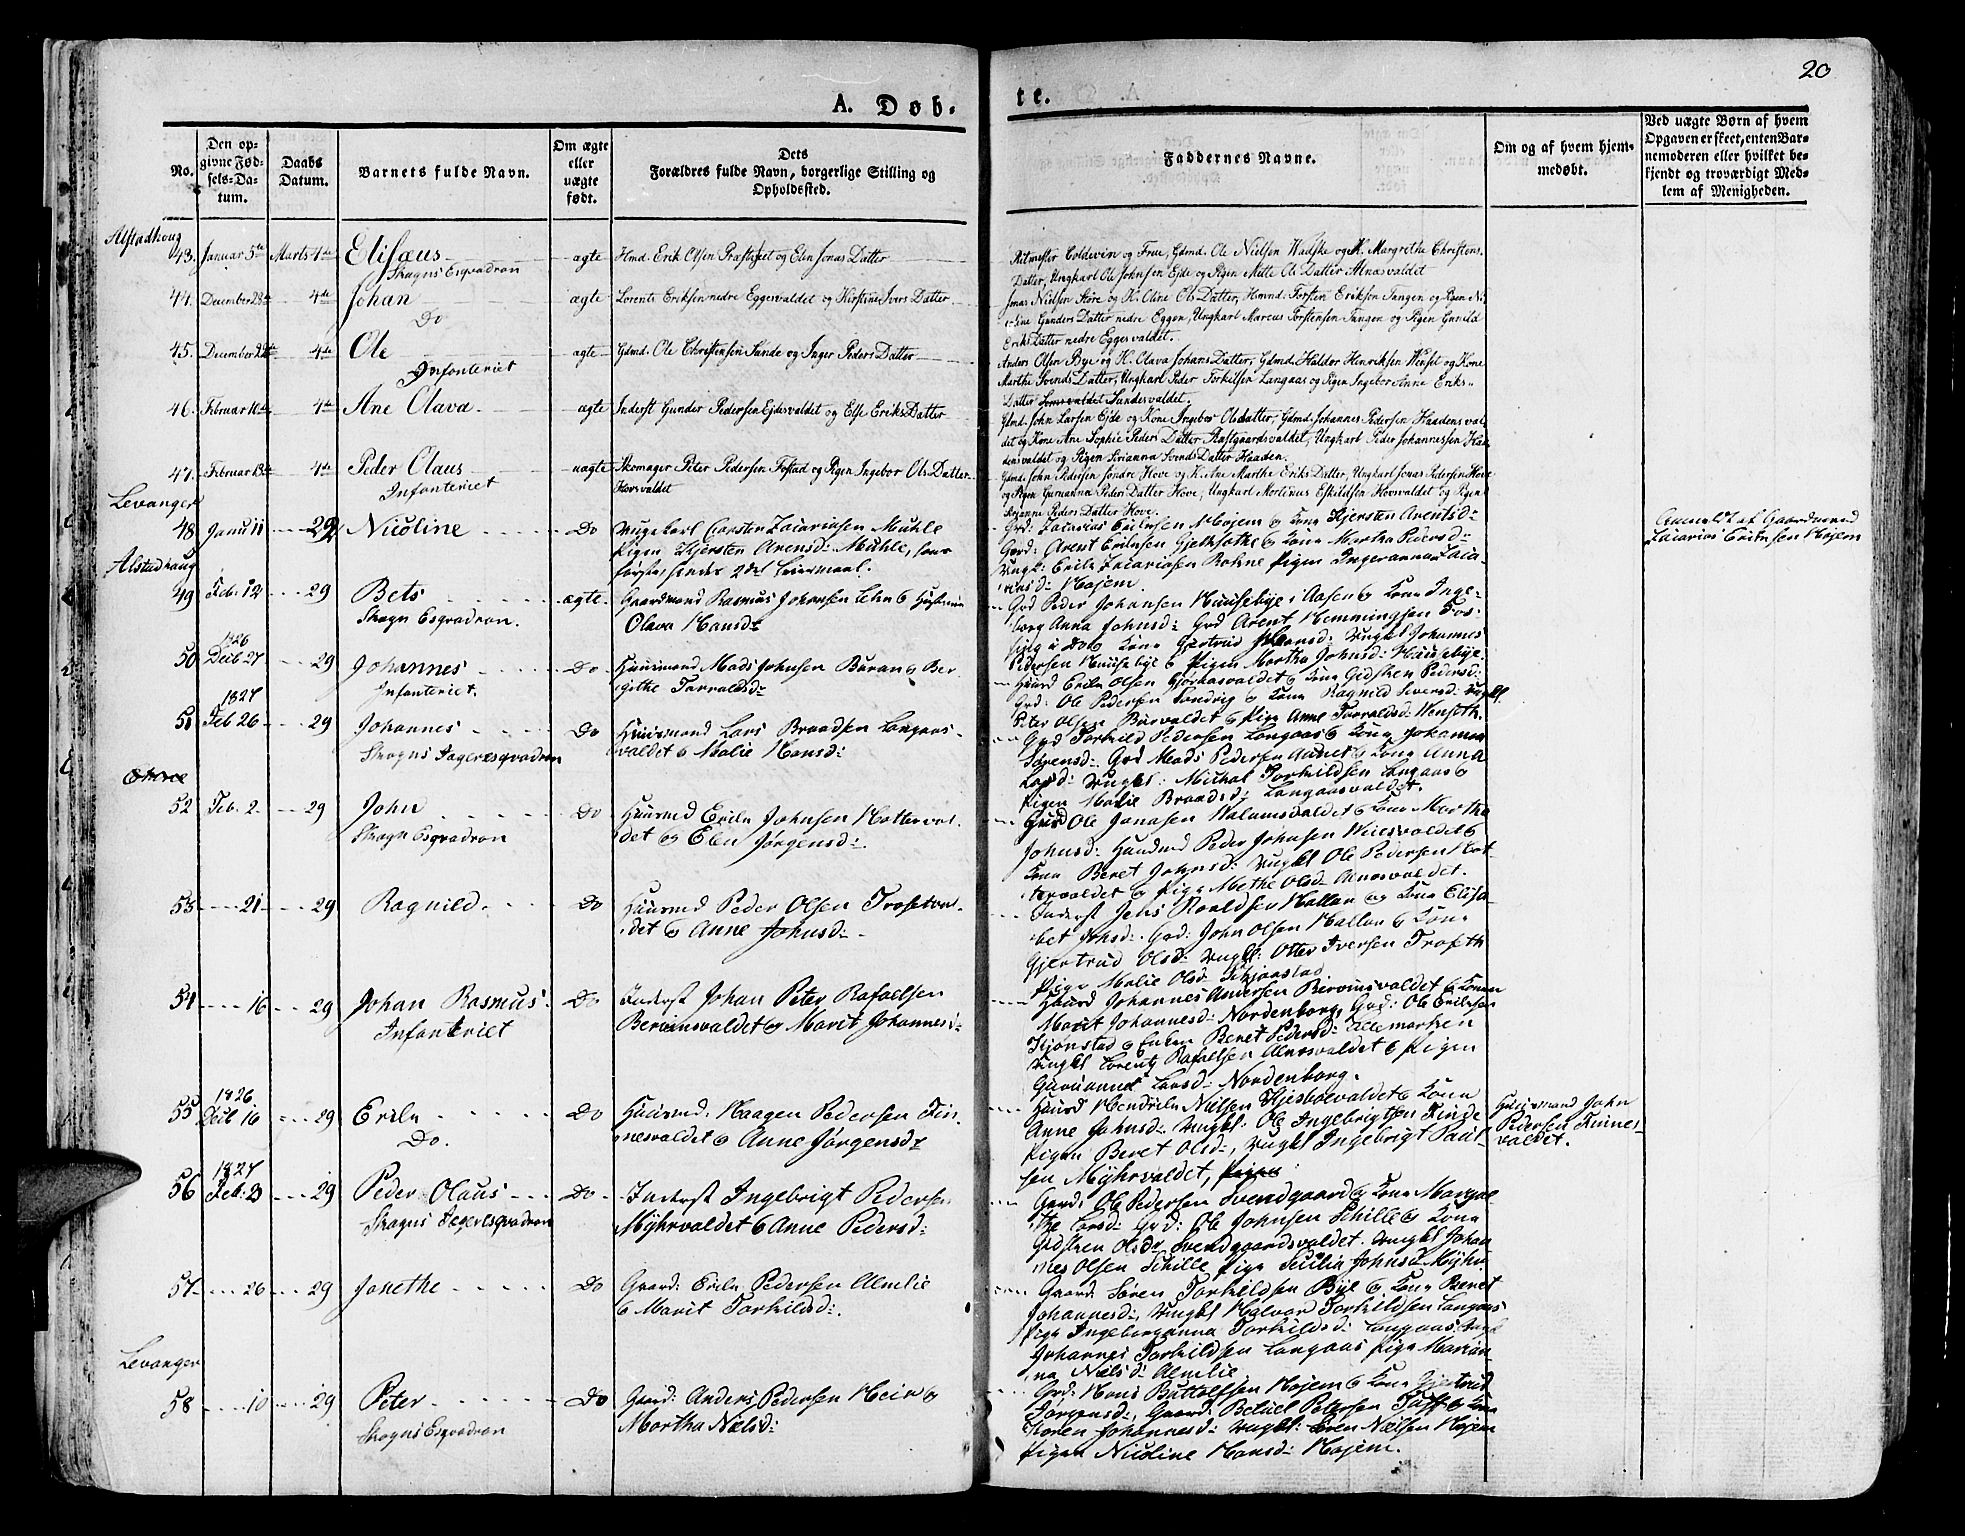 20
A. Døb-
te.
No.
Den op-
givne Fød-
sels-Da-
tum.
Daabs
Datum.
Barnets fulde Navn.
Om ægte
eller
uægte
født.
Dets
Forældres fulde Navn, borgerlige Stilling og
Opholdssted.
Faddernes Navne.
Om og af hvem hjem-
medøbt.
Ved uægte Børn af hvem
Opgaven er skeet, enten Bar-
nemoderen eller hvilket be-
kjendt og troværdigt Med-
lem af Menigheden.
Alstadhoug
43. Januar 5te Marts 4de Elisæus ægte Hmd. Erik Olsen og Elen Jonas Datter
Skogns Esqvadron
Ritmester Coldevin og Frue, Gdmd. Ole Nielsen Wadske og K. Margrethe Christens
Datter, Ungkarl Ole Johnsen Ejde og Pigen Mille Ols Datter Alnasvaldet
44. December 28de 4de Johan ægte Lorents Eriksen nedre Eggesvaldet og Kirstine Ivers Datter
Do
Jonas Nielsen Store og K. Oline Ols Datter, Hmnd. Torsten Eriksen Tangen og Pigen Ni-
coline Gunders Datter nedre Eggen, Ungkarl Marcus Torstensen Tangen og Pigen Gunild
Eriks Datter nedre Eggesvaldet.
45. December 4de Ole ægte Gdmd. Ole Christensen Sunde og Inger Peders Datter
Infanteriet
Anders Olsen Bye og K. Olava Johans Datter, Gdmd. Haldor Henriksen Wenset og Kone
Marthe Svends Datter, Ungkarl Peder Torkilsen Langaas og Pigen Ingebor Anne Eriks-
Datter Sundesvaldet.
46. Februar 10de 4de Ane Olava ægte Inderst Gunder Pedersen Ejdesvaldet og Else Eriks Datter
Gdmd. John Larsen Ejde og Kone Ingebor Olsdatter, Gdmd. Johannes Pedersen Haadensval
det og Kone Ane Sophie Peders Datter, Ungkarl Peder Johannessen Haa-
densvaldet og Pigen Serianna Svends Datter Haaden.
47. Februar 13de 4de Peder Olaus uægte Skomager Peter Pedersen Fostad og Pigen Ingebor Ols Datter
Infanteriet
Hovsvaldet
Gdmd. John Pedersen søndre Hove og K. Ane Marthe Eriks Datter, Ungkarl Jonas Pedersen Hove
og Pigen Gurianna Peders Datter Hove, Ungkarl Mortinus Eskildsen Hovsvaldet og Pigen
Serjanne Peders Datter Hove.
Levanger
48 Janu 11 29 Nicoline Do Ungekarl Carsten Zacariasen Muhle
Pigen Kjersten Arensd: Muhle, hans
første, hendes 2det Leiermaal.
Grd: Zacarias Erichsen Højem & Kone Kjersten Arentsd:
Grd: Arent Erichsen & Kone Martha Pedersd:
Ungk: Erich Zacariasen Rohne Pigen Ingeranna Zaca-
riasd: Højem
Anmeldt af Gaardmand
Zacarias Erichsen Højem
Alstadhaug
49 Feb: 12 29 Bets ægte Gaardmand Rasmus Johansen Lehn & Hustru
Olava Hansd:
Skogn Esqvadron.
Grd Peder Johansen Huusebye i Aasen & Kone Inge-
borg Anna Johnsd: Grd Arent Hemmingsen Fos-
sing i Do & Kone Gjertrud Hansd: Ungkl Johannes
Pedersen Huusebye & Pigen Martha Johnsd: Huusebye.
1826
50 Decb 27 29 Johannes Do Huusmand Mads Johnsen Buran & Ber-
githe Torvaldsd:
Infanteriet.
Huusd Erich Olsen & Kone Gidsken Pedersd:
Grd: Ole Pedersen Sandrig & Kone Ragnild Siversd: Ungkl.
Peter Olsen & Pige Anne Torvaldsd: Wenseth.
1827
51 Feb 26 29 Johannes Do Huusmand Lars Braadsen Langaas-
valdet & Malie Hansd:
Skogns Jageresqvadron
Grd Torkild Pedersen Langaas & Kone Johanna
Sørensd: Grd Mads Pedersen Aunet & Kone Anna
Larsd: Ungkl: Michal Torkildsen Langaas &
Pigen Malie Braadsd: Langaasvaldet.
52 Feb: 2 29 John Do Huusmd Erich Johnsen Hotterval-
det og Elen Jørgensd:
Skogn Esqvadron
Ole Jonasen & Kone Martha
Johnsd: Huusmd Peder Johnsen &
Kone Beret Johnsd: Ungkl Ole Pedersen Hot-
tervaldet & Pige Methe Olsd Alnasvaldet.
53 21 29 Ragnild Do Huusmd Peder Olsen Trosetval-
det & Anne Johnsd:
Inderst Jens Roaldsen Hallan og Kone Elisa-
bet Johsd: Grd: John Olsen Hallan & Kone
Gjertrud Olsd: Ungkl: Otter Iversen Troseth
Pige Malie Olsd Skjønstad
54 16 29 Johan Rasmus Do Inderst Johan Peter Rafaelsen
Bervinsvaldet & Marit Johannesd:
Infanteriet
Huusd Johannes Andersen Bervinsvaldet & Konen
Marit Johannesd: Nordenborg, Grd: Ole Erichsen
Skjønstad & Enken Beret Pedersd:
Ungkl Lorentz Rafaelsen Alnasvaldet & Pigen
Gurianna Larsd: Nordenborg.
1826
55 Decb 16 29 Erich Do Huusmd: Haagen Pedersen Fin-
nesvaldet & Anne Jørgensd:
Do.
Huusd Hendrich Nielsen & Kone
Anne Johnsd: Ungkl: Ole Ingebrigtsen Finde
Pigen Beret Olsd:, Ungkl Ingebrigt Paul-
sen Myhrvaldet, Pigen
Huusmand John
Pedersen Finnes-
valdet.
1827
56 Feb: 23 29 Peder Olaus Do Inderst Ingebrigt Pedersen
Myhrvaldet & Anne Pedersd:
Skogns Jegeresqvadron
Gaard: Ole Pedersen Svendgaard & Kone Margre-
the Larsd: Grd: Ole Johnsen Schille & Kone
Gidsken Olsdr Svendgaardsvaldet. Ungkl Johan
nes Olsen Schille Pige Sicilia Johnsd Myhr.
57 26 29 Jonethe Do Gaard: Erich Pedersen Almlie
& Marit Torkildsd:
Gaard Søren Torkildsen Bye & Kone Beret
Johannesd:, Ungkl Halvor Torkildsen Langaas
Pige Ingeborganna Torkildsd: Langaas Ungk
Johannes Torkildsen Langaas Pige Marian-
na Nielsd: Almlie
Levanger
58 10 29 Peter Do Gaard: Anders Pedersen Hein &
Martha Nielsd:
Skogns Esqvadron
Grd: Hans Buttolfsen Højem & Kone Gjertrud
Jørgensd:, Gaard: Betuel Petersen Tuft & Kone
Karen Johannesd: Ungkl: Søren Nielsen Højem
Pigen Nicoline Hansd: Højem.